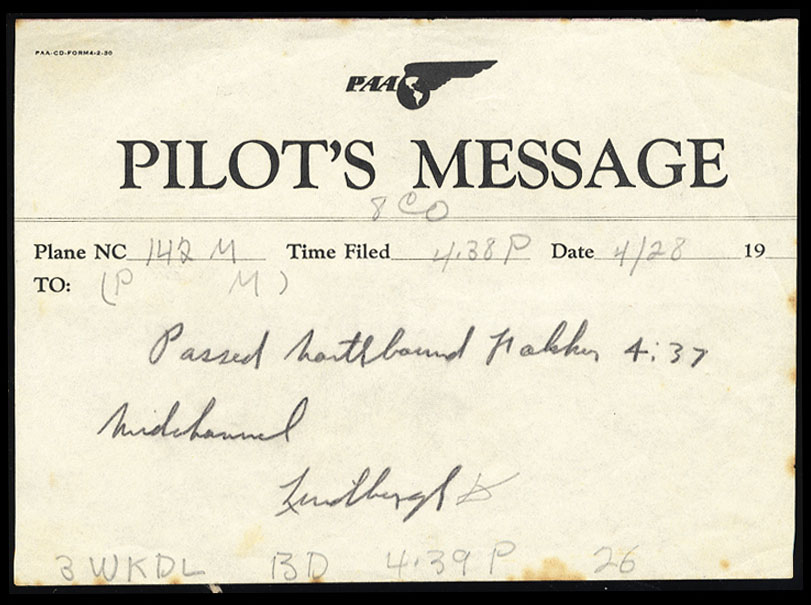 PAA-CD-FORM4-2-30
PAA
PILOT'S MESSAGE
8 CO
Plane NC 142 M Time Filed 4:38 P Date 4/28 19
TO: (P M)
Passed Northbound Fokker 4:37
Midchannel
Lindbergh
3 WKDL BD 4:39 P 26